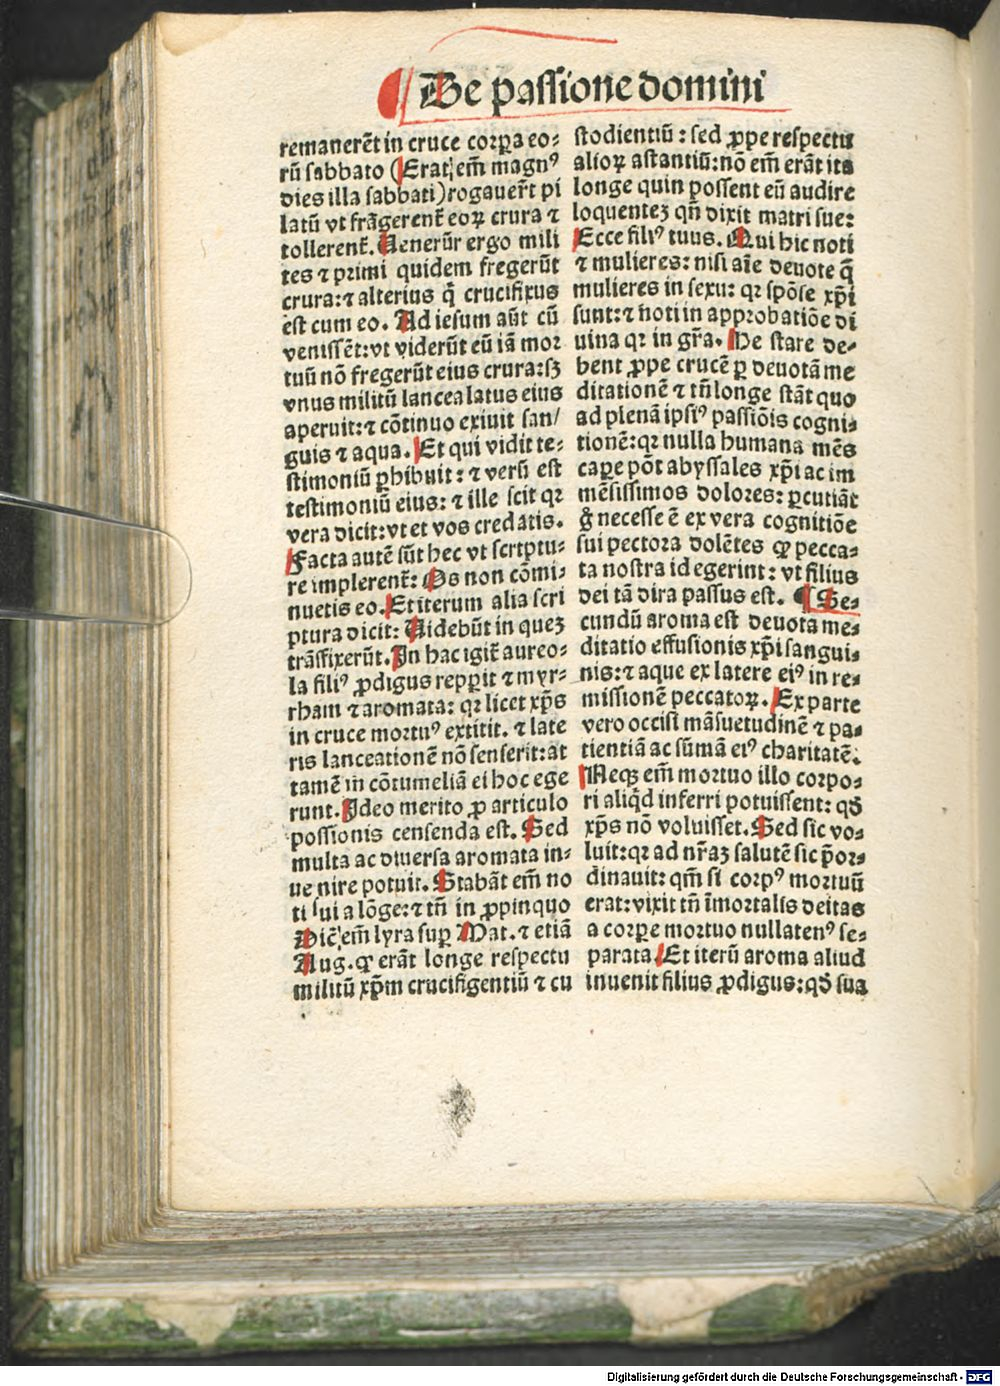 De passione domini
remanerēt in cruce corꝑa eo-
rū sabbato (Erat em̄ magnꝰ
dies illa sabbati) rogauer̄t pi
latū vt frāgerent̄ eoꝝ crura ⁊
tollerent̄. Uenerūr ergo mili
tes ⁊ primi quidem fregerūt
crura: ⁊ alterius q̄ crucifixus
est cum eo. Ad iesum aūt cū
venissēt: vt viderūt eū iā mor
tuū nō fregerūt eius crura: sꝫ
vnus militū lancea latus eius
aperuit: ⁊ cōtinuo exiuit san/
guis ⁊ aqua. Et qui vidit te-
stimoniū ꝑhibuit: ⁊ verū est
testimoniū eius: ⁊ ille scit qꝛ
vera dicit: vt et vos credatis.
Facta autē sūt hec vt scrtptu-
re implerent̄: Os non cōmi-
nuetis eo. Et iterum alia scri
ptura dicit: Uidebūt in quez
trāsfixerūt. In hac igit̄ aureo-
la filiꝰ ꝓdigus repꝑit ⁊ myr-
rham ⁊ aromata: qꝛ licet xp̄s
in cruce mortuꝰ extitit. ⁊ late
ris lanceationē nō senserit: at
tamē in cōtumeliā ei hoc ege
runt. Ideo merito ꝓ articulo
possionis censenda est. Sed
multa ac diuersa aromata in-
ue nire potuit. Stabāt em̄ no
ti sui a lōge: ⁊ tn̄ in ꝓpinquo
Dic̄ em̄ lyra suꝑ Mat. ⁊ etiā
Aug. ꝙ erāt longe respectu
militū xp̄m crucifigentiū ⁊ cu
stodientiū: sed ꝓpe respectu
alioꝝ astantiū: nō em̄ erāt ita
longe quin possent eū audire
loquentez qn̄ dixit matri sue:
Ecce filiꝰ tuus. Qui hic noti
⁊ mulieres: nisi aīe deuote q̄
mulieres in sexu: qꝛ spōse xp̄i
sunt: ⁊ noti in approbatiōe di
uina qꝛ in gr̄a. He stare de-
bent ꝓpe crucē ꝑ deuotā me
ditationē ⁊ tn̄ longe stāt quo
ad plenā ipsiꝰ passiōis cogni-
tionē: qꝛ nulla humana mēs
caꝑe pōt abyssales xp̄i ac im
mēsissimos dolores: ꝑcutiāt
g̊ necesse ē ex vera cognitiōe
sui pectora dolētes ꝙ pecca-
ta nostra id egerint: vt filius
dei tā dira passus est. ¶ Se-
cundū aroma est deuota me-
ditatio effusionis xp̄i sangui-
nis: ⁊ aque ex latere eiꝰ in re-
missionē peccatoꝝ. Ex parte
vero occisi māsuetudinē ⁊ pa-
tientiā ac sūmā eiꝰ charitatē:
Neqꝫ em̄ mortuo illo corpo-
ri aliq̄d inferri potuissent: qd̄
xp̄s nō voluisset. Sed sic vo-
luit: qꝛ ad nr̄aꝫ salutē sic p̄or-
dinauit: qm̄ si corpꝰ mortuū
erat: vixit tn̄ īmortalis deitas
a corꝑe mortuo nullatenꝰ se-
parata. Et iterū aroma aliud
inuenit filius ꝓdigus: qd̄ sua
Digitalisierung gefördert durch die Deutsche Forschungsgemeinschaft - DFG